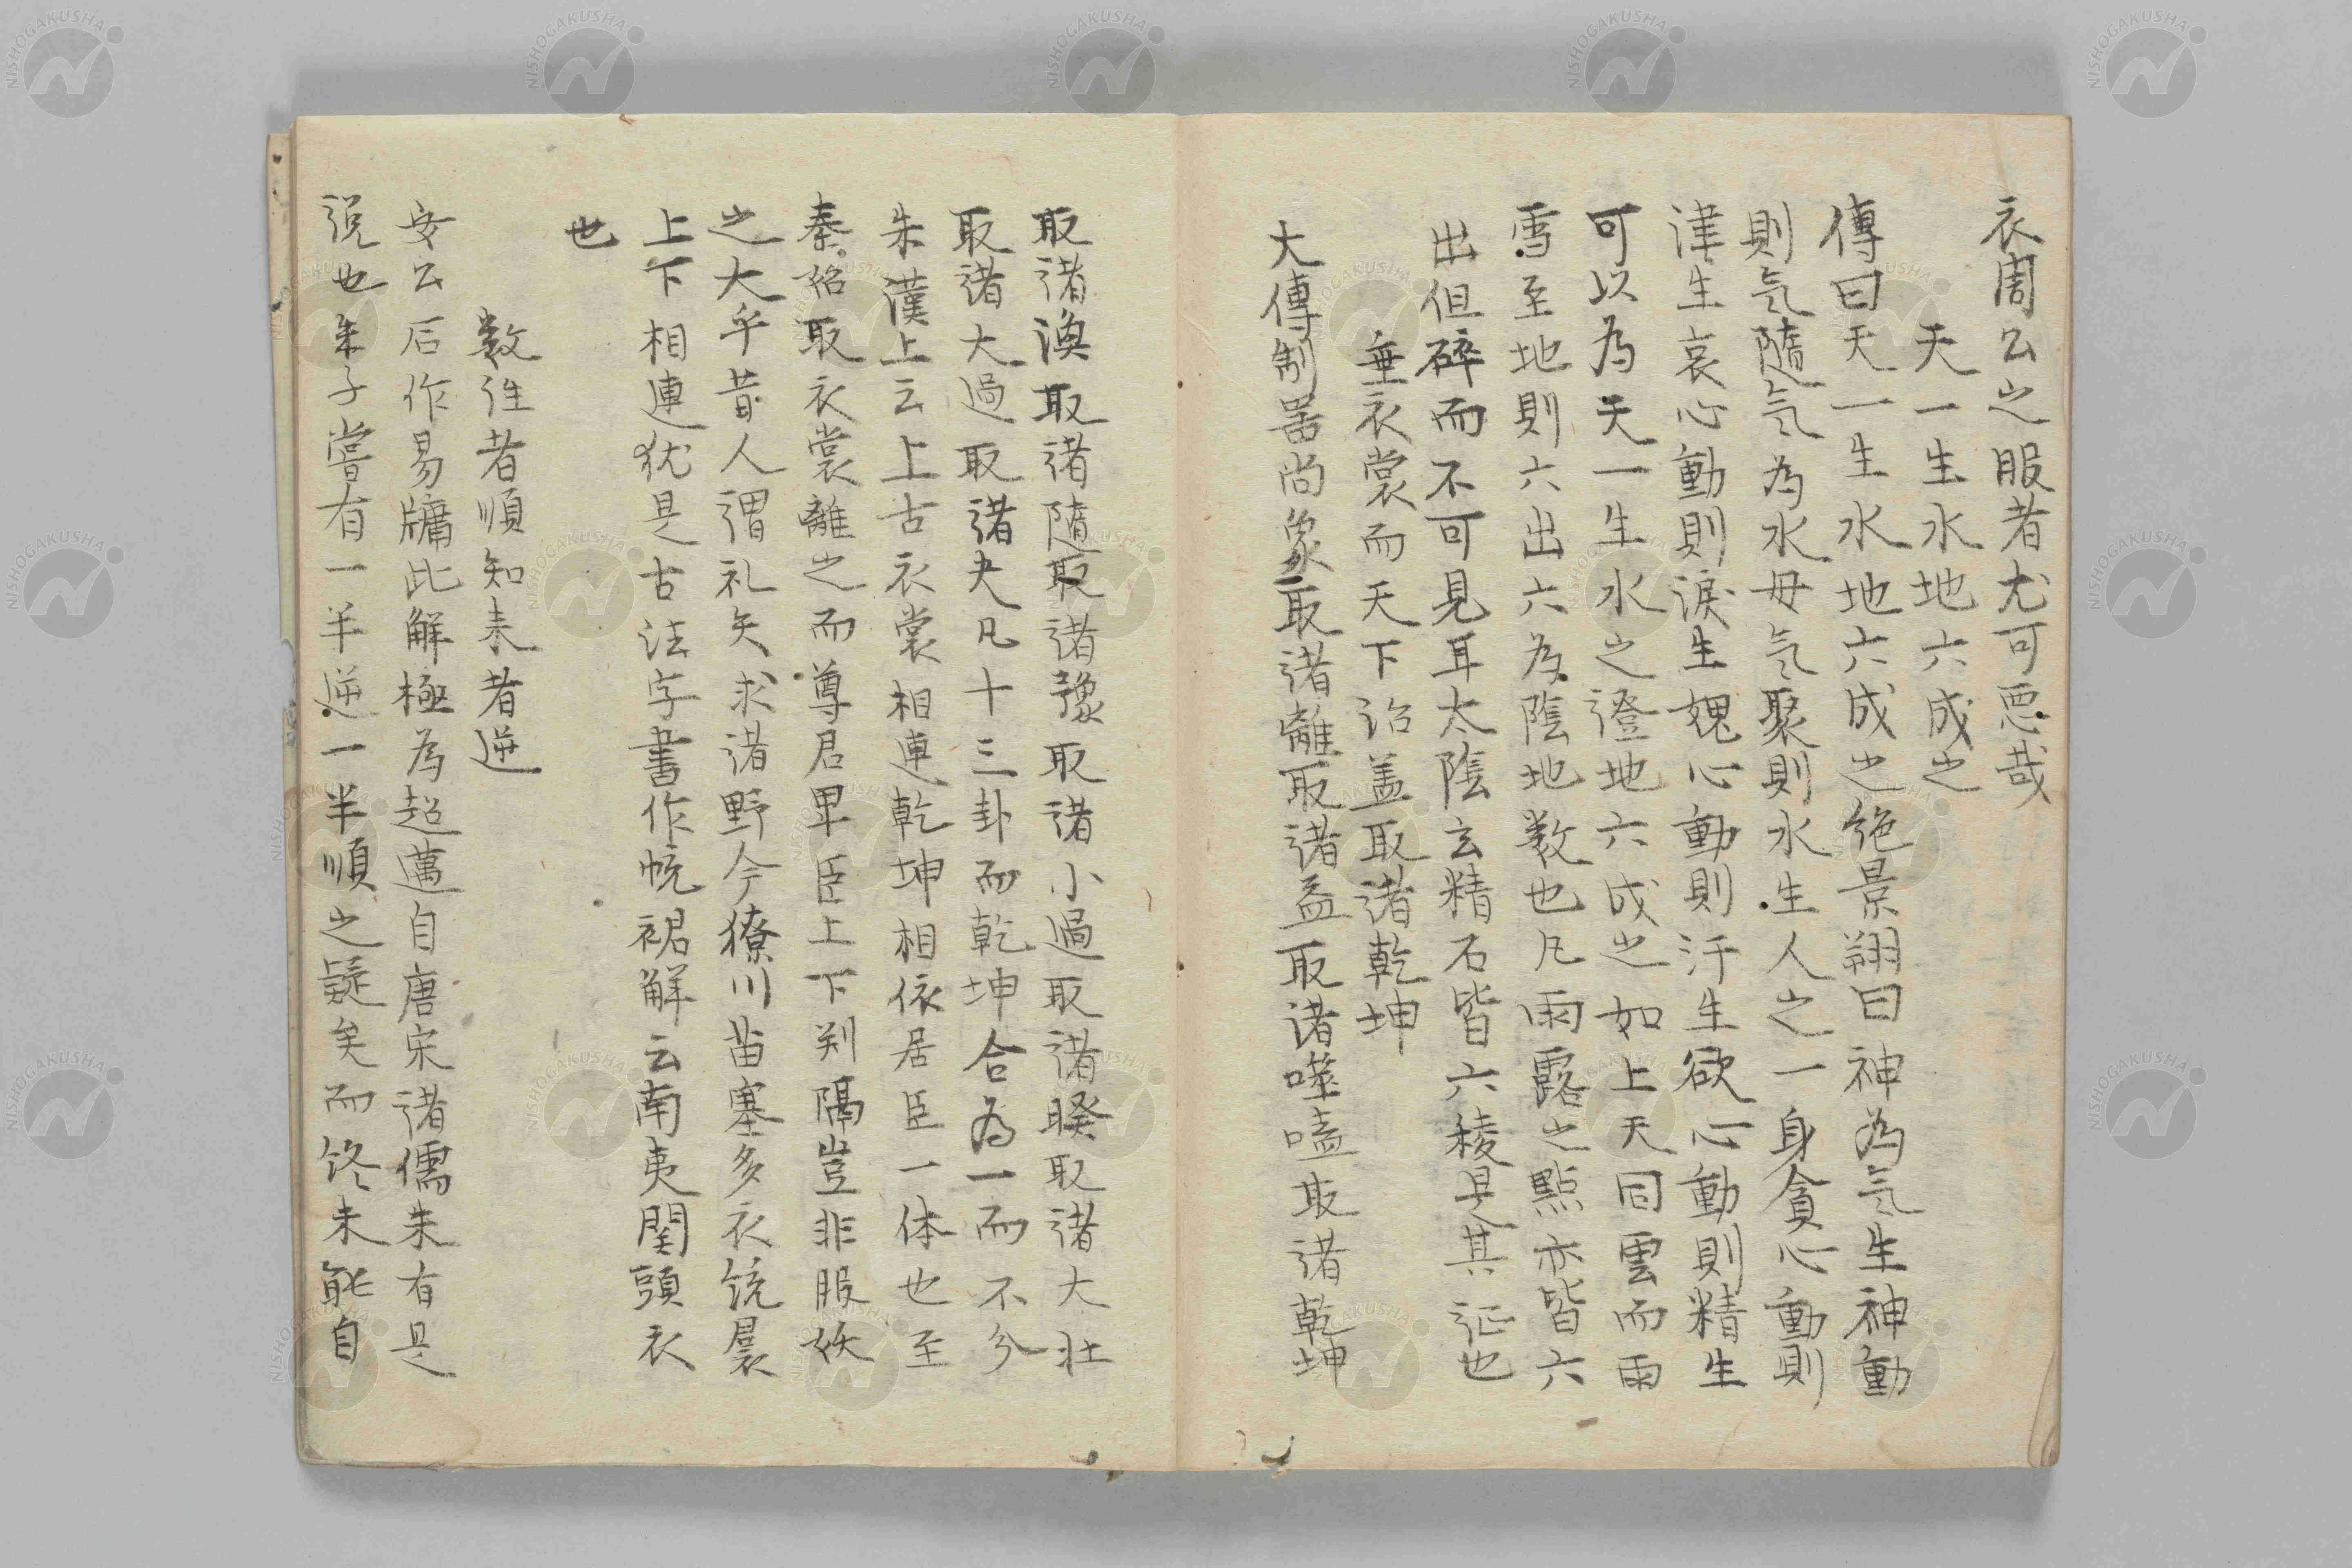 衣周公之服者尤可悪哉
天一生水地六成之
傳曰天一生水地六成之絶景翔曰神為気生神動
則気隨気為水母気聚則水生人之一身貪心動則
津生哀心動則淚生媿心動則汗生欲心動則精生
可以為天一生水之證地六成之如上天同雲而雨
雪至地則六出六為陰地数也凡雨露之點亦皆六
出但碎而不可見耳太陰玄精石皆六稜是其証也
垂衣裳而天下治盖取諸乾坤
大傳制器尚象取諸離取諸益取諸噬嗑取諸乾坤
取諸渙取諸隨取諸豫取諸小過取諸睽取諸大壮
取諸大過取諸夬凡十三卦而乾坤合為一而不分
朱漢上云上古衣裳相連乾坤相依居臣一体也至
秦始取衣裳離之而尊君卑臣上下判隔豈非服妖
之大乎昔人謂礼失求諸野今獠川苗寨多衣統裙
上下相連犹是古法字書作帬裙解云南夷関頭衣
也
数往者順知来者逆
安公石作易牖此解極為超邁自唐宋諸儒朱有是
説也朱子嘗有一半逆一半順之疑矣而終未能自
NISHOGAKUSHA